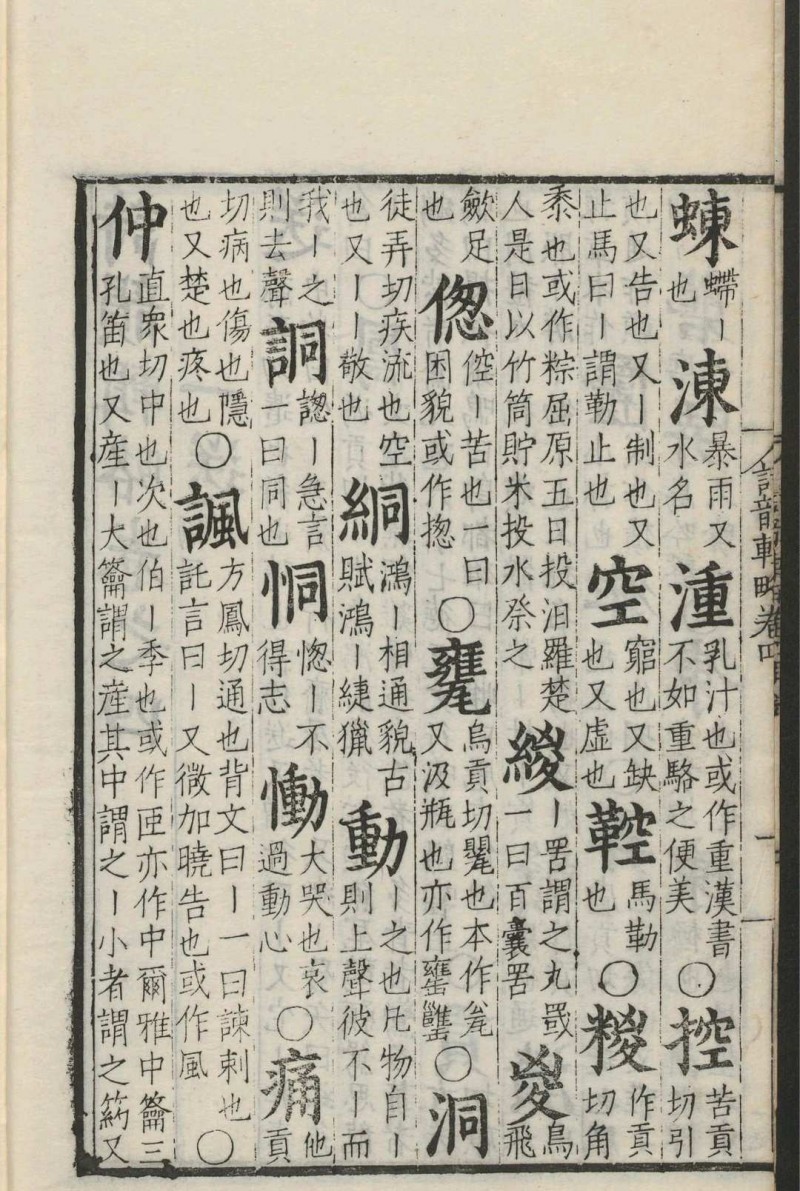 蝀螮丨也涷暴雨又水名湩乳汁也或作重漢書不如重駱之便美〇控苦貢切引
也又告也又丨制也又止馬曰丨謂勒止也空窮也又缺也又虛也鞚馬勒也〇糉作貢切角
黍也或作粽屈原五日投汨羅楚人是日以竹筒貯米投水祭之緵丨罟謂之九罭一曰百囊罟㚇鳥飛
斂足也偬倥丨苦也一曰困貌或作揔〇甕烏貢切甖也本作瓮又汲瓶也亦作罋〇洞
徒弄切疾流也空也又丨丨敬也絧鴻丨相通貌古賦鴻丨緁獵動丨之也凡物自丨則上聲彼不丨而
我丨之則去聲詷謥丨急言一曰同也恫愡丨不得志慟大哭也哀過動心〇痛他貢
切病也傷也隱也又楚也疼也〇諷方鳳切通也背文曰丨一曰諫刺也託言曰丨又微加曉告也或作風〇
仲直衆切中也次也伯丨季也或作亦作中爾雅中籥三孔笛也又産丨大籥謂之産其中謂之丨小者謂之箹又
韻輯略卷四